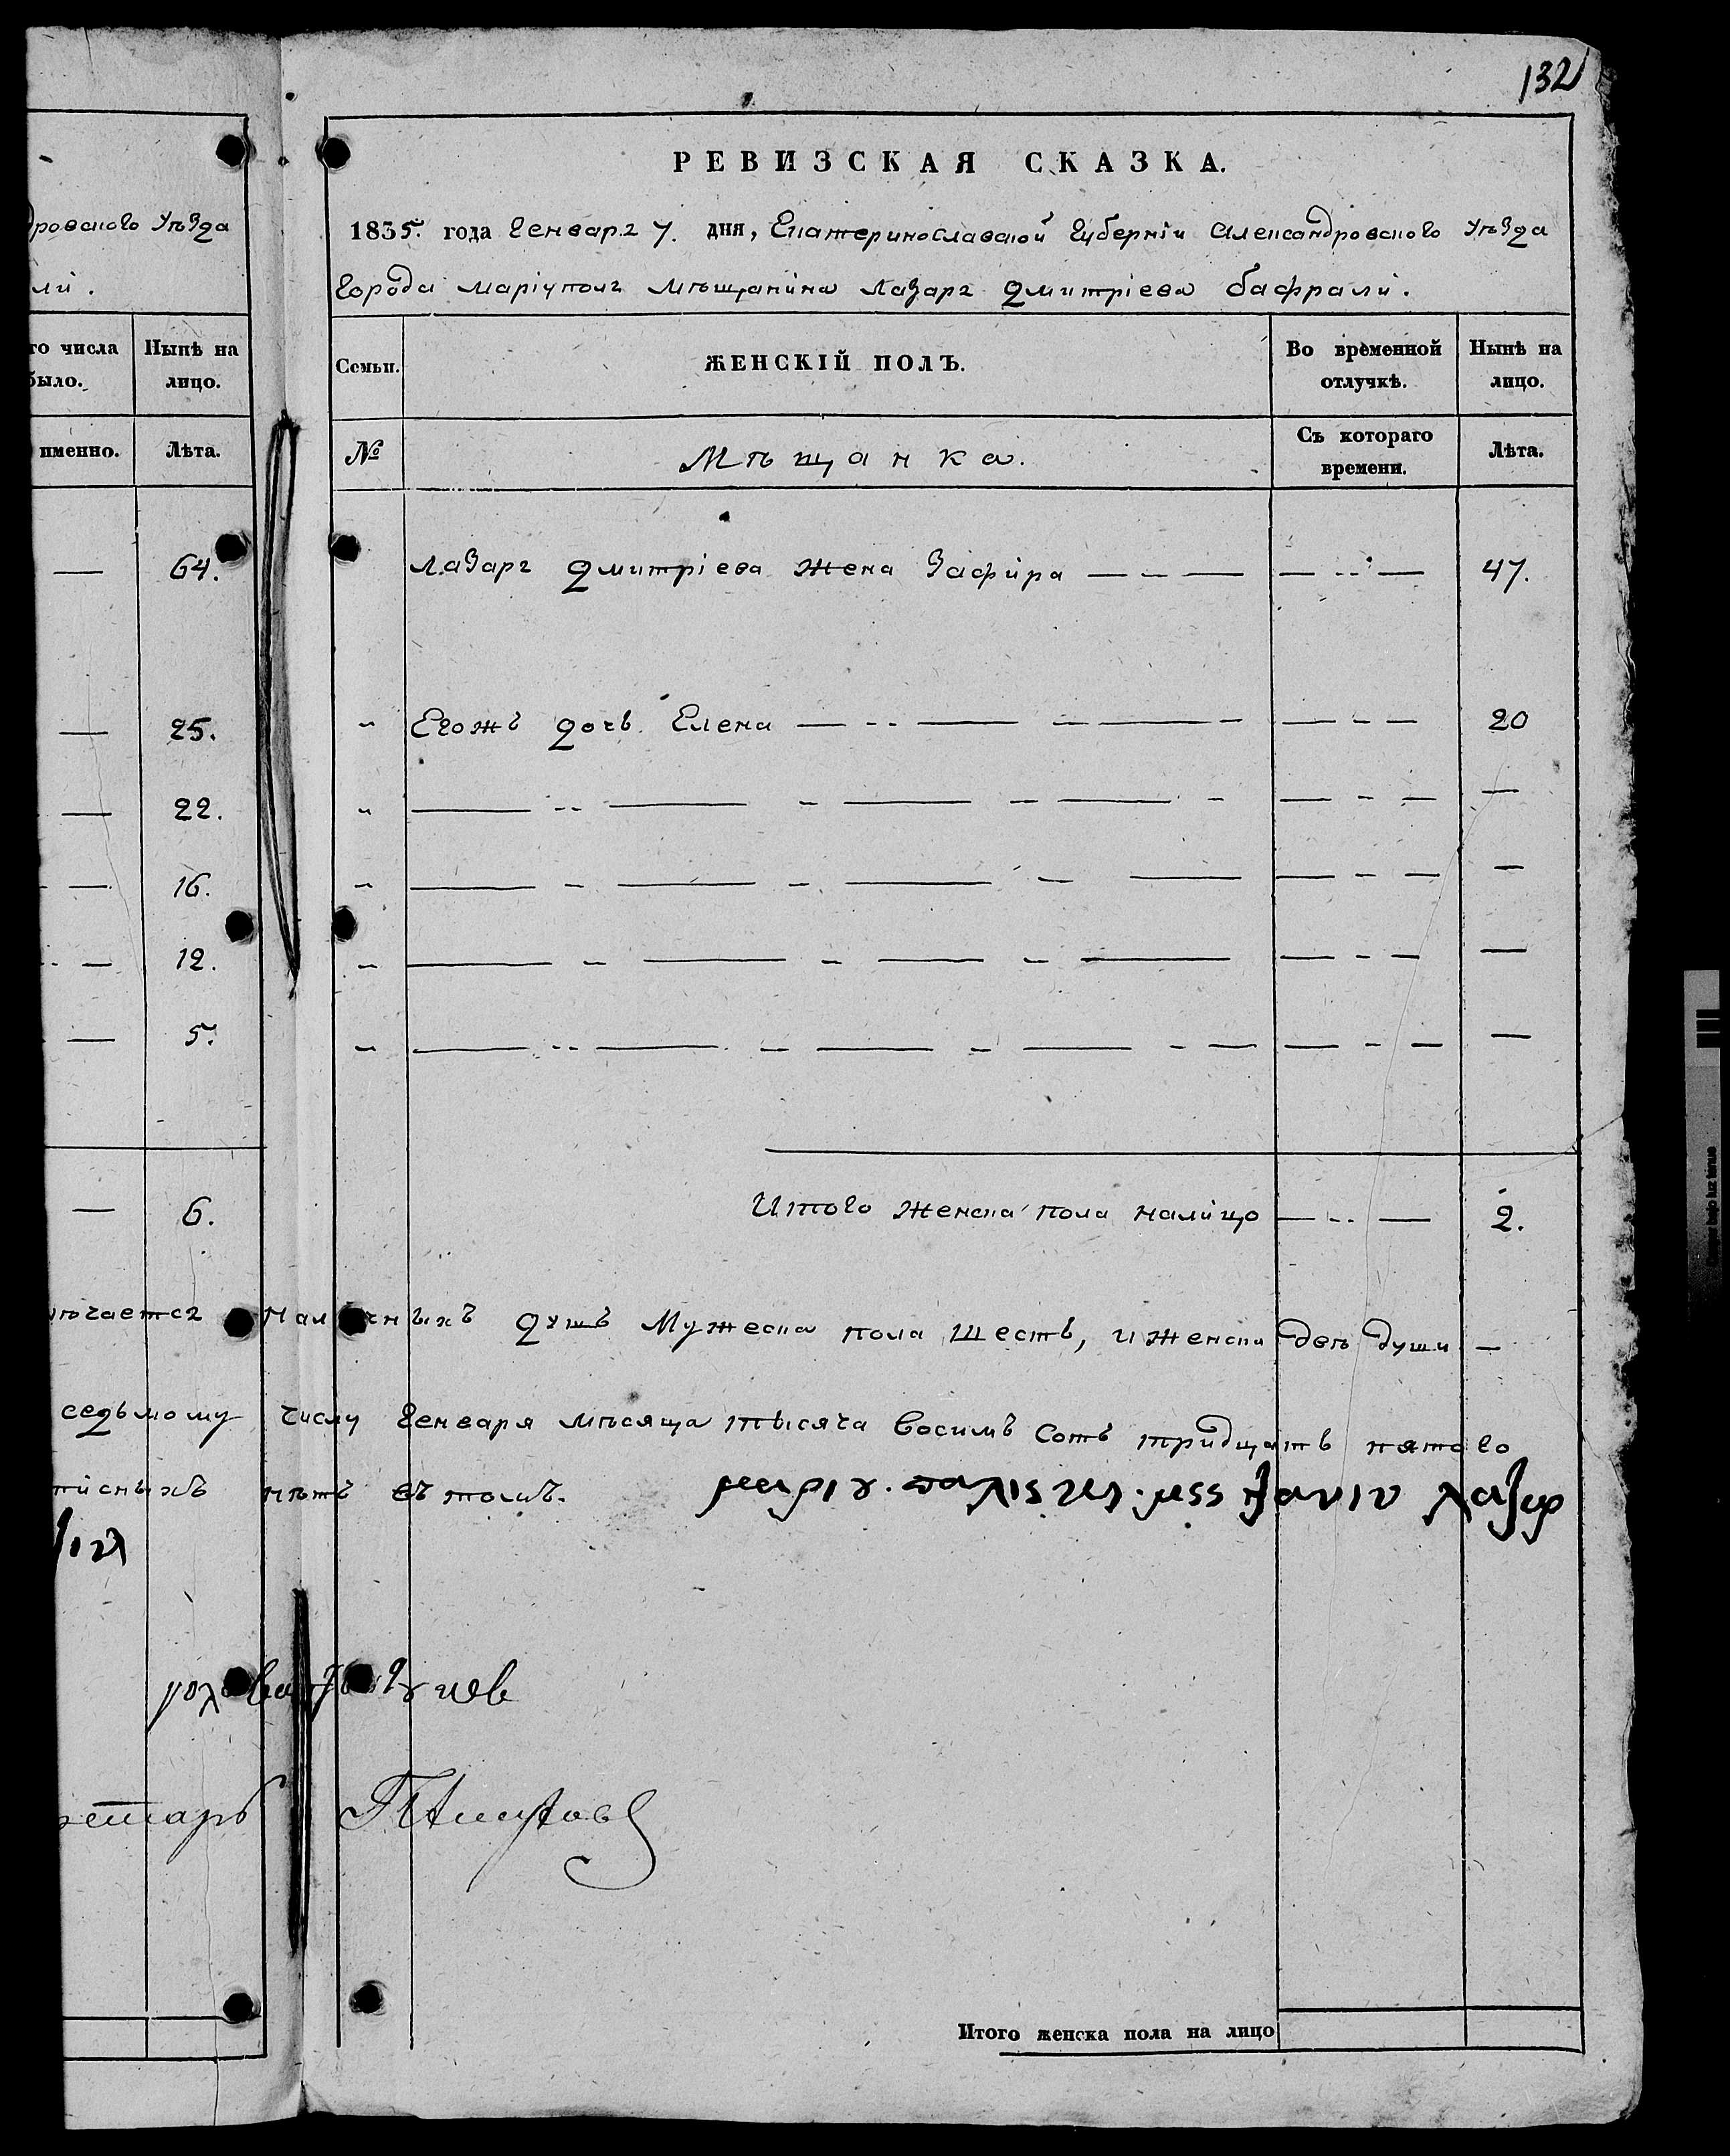 132
РЕВИЗСКАЯ СКАЗКА.
дровскаго Уѣзда
ли.
1835. года Генваря 7. дня, Екатеринославской Губерніи Александровскаго Уѣзда
Города Маріуполя Мѣщанина Лазаря Дмитріева Бафрали.
го числа было.
Нынѣ на лицо.
Семьи.
ЖЕНСКІЙ ПОЛЪ.
Во временной отлучкѣ.
Нынѣ на лицо.
именно.
Лѣта.
№
Мѣщанка.
Съ котораго времени.
Лѣта.
— 64.
Лазаря Дмитріева жена Зафира — - — — -- — 47.
— 25.
" Егожъ дочь Елена — -- — - — - — - — 20
— 22.
— 16.
— 12.
— 5.
— 6.
Итого женска пола налицо — -- — 2.
ючается наличныхъ душъ Мужеска пола шесть, и женска двѣ души —
седьмому числу Генваря мѣсяца тысяча восимъ сотъ тридцать пятого
писныхъ нѣтъ въ томъ.
етарь
Итого женска пола на лицо